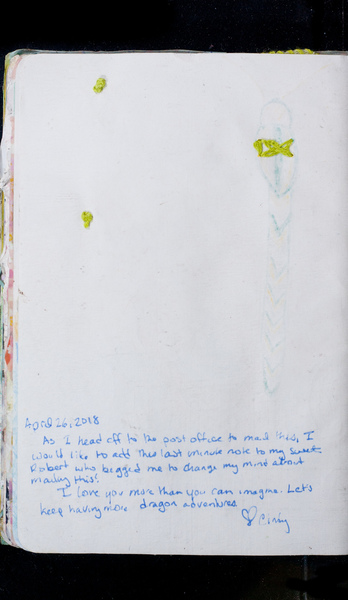 April 26, 2018
As I head off to the post office to mail this, I
would like to add this last minute note to my sweet
Robert who begged me to change my mind about
mailing this!
I love you more than you can imagine. Let's
keep having more dragon adventures.
♡ Cindy